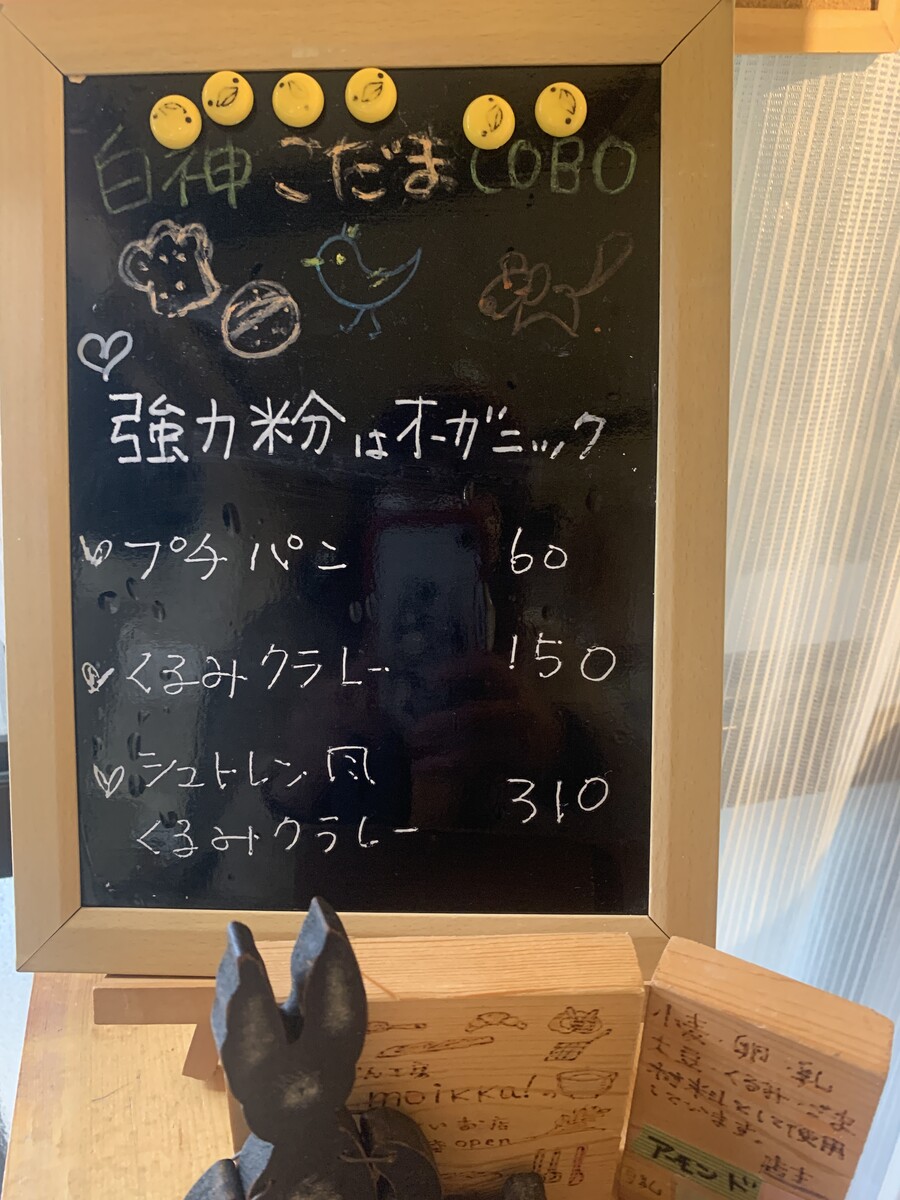 白神こだまCOBO
強力粉はオーガニック
プチパン 60
くるみクラレー 150
シュトレン風
くるみクラレー 310
moikka!
open
小麦・卵・乳
大豆・くるみ・ごま
材料として使用
しています。
店主
アーモンド